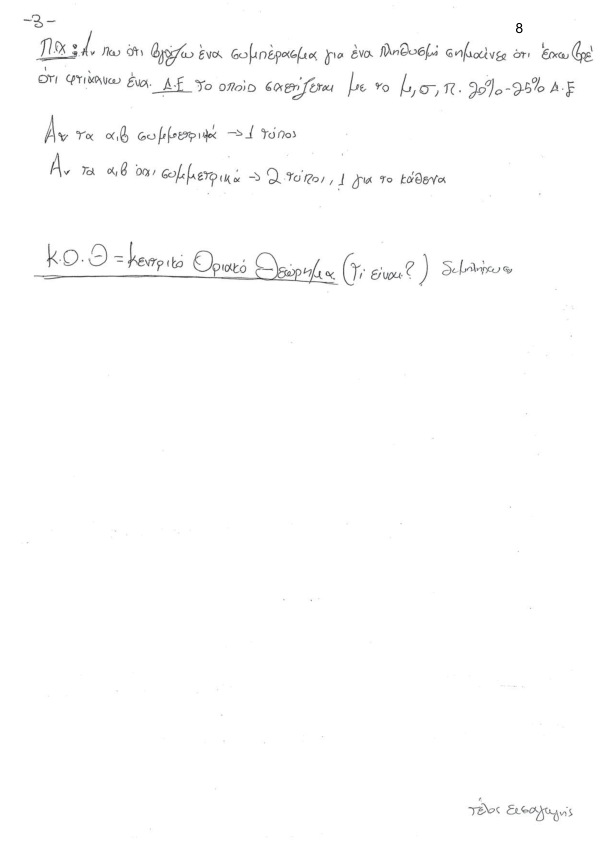 -3-
8
Π.Χ: Αν πω ότι βγάζω ένα συμπέρασμα για ένα πληθυσμό σημαίνει ότι έχω βρε
ότι φτιάχνω ένα Δ.Ε το οποίο σχετίζεται με το μ, σ, π. 20%-25% Δ.Ε
Αν τα α,β συμμετρικά → 1 τύπος
Αν τα α,β όχι συμμετρικά → 2 τύποι, 1 για το κάθενα
Κ.Ο.Θ = Κεντρικό Οριακό Θεώρημα (Τι είναι?)
Τέλος Εισαγωγής